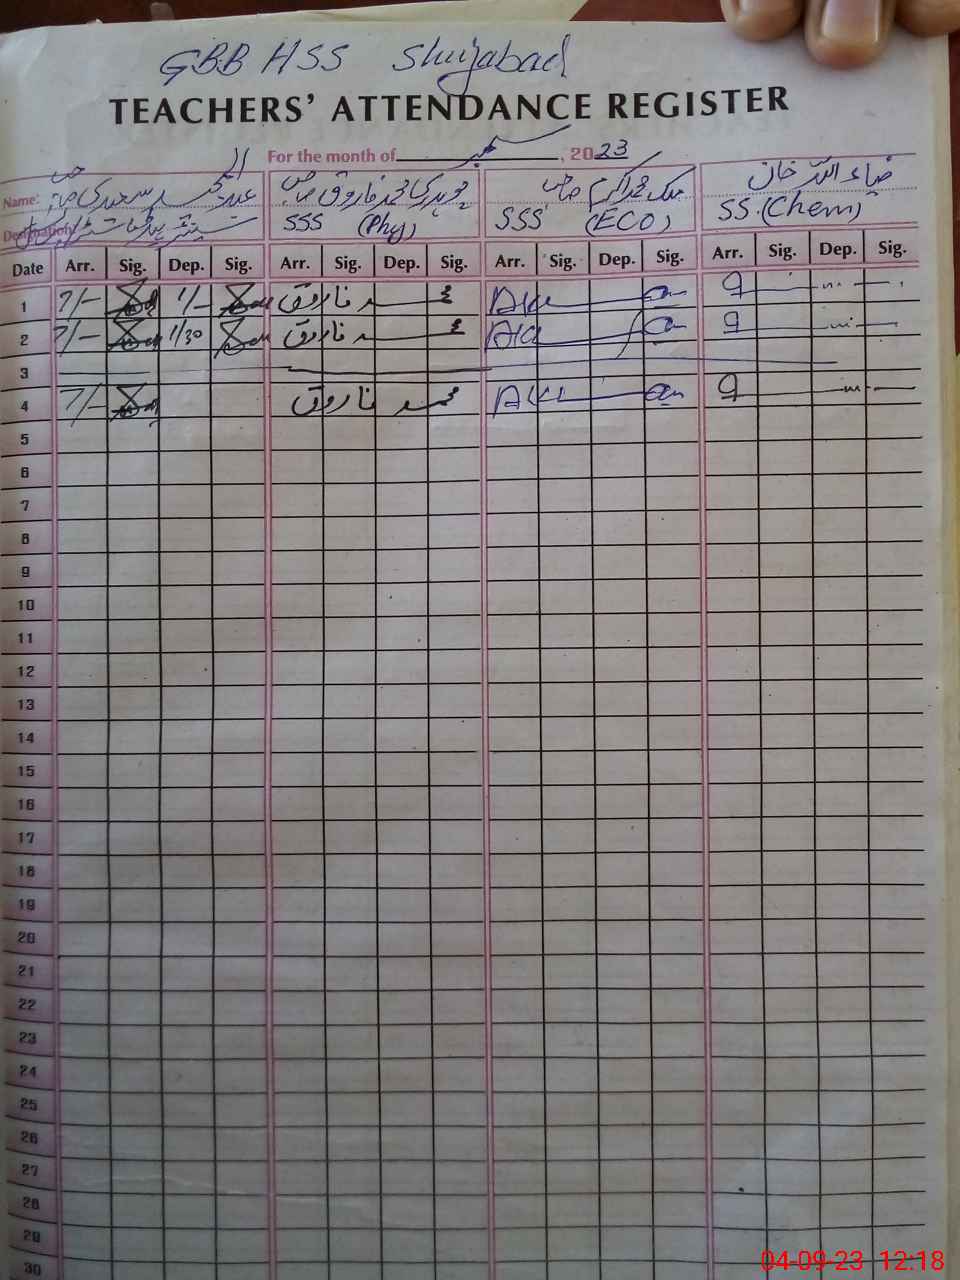 GBB HSS Shujabad
TEACHERS' ATTENDANCE REGISTER
For the month of ستمبر, 2023
Name: چوہدری محمد فاروق صاحب ملک محمد اکرم صاحب ضیاء اللہ خان
Designation: SSS (Phy) SSS (ECO) SS.(Chem)
Date Arr. Sig. Dep. Sig. Arr. Sig. Dep. Sig. Arr. Sig. Dep. Sig. Arr. Sig. Dep. Sig.
1 7/- 1/- محمد فاروق
2 7/- 1/30 محمد فاروق
3
4 7/- محمد فاروق
5
6
7
8
9
10
11
12
13
14
15
16
17
18
19
20
21
22
23
24
25
26
27
28
29
30
04-09-23 12:18